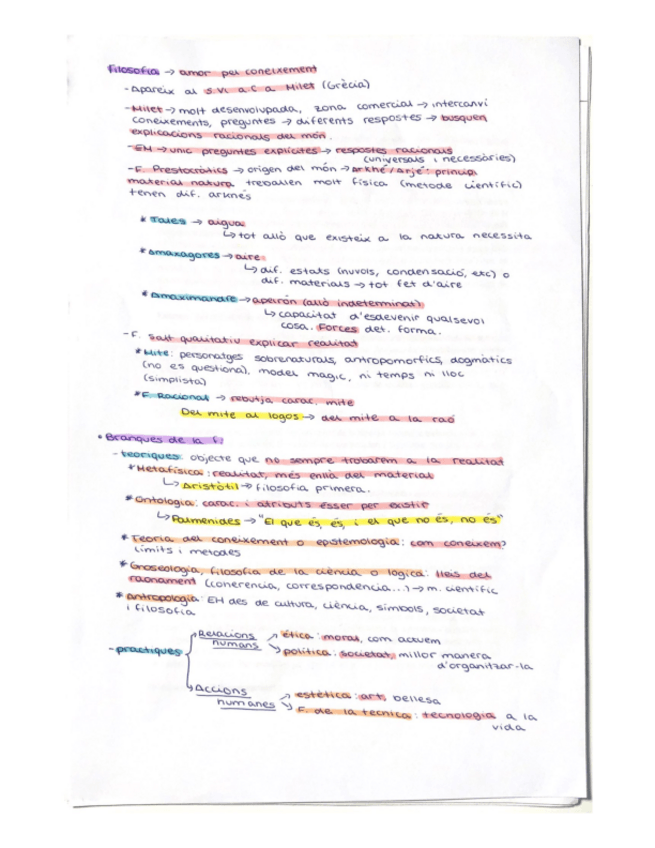 Filosofia → amor pel coneixement
-Apareix al s.VI a.C a Milet (Grècia)
-Milet → molt desenvolupada, zona comercial → intercanvi
coneixements, preguntes → diferents respostes → busquen
explicacions racionals del món.
-EH → unic preguntes explícites → respostes racionals
(universals i necessàries)
-F. Presocràtics → origen del món → Arkhé/Arjé: principi
material natura, treballen molt física (metode científic)
tenen dif. arkhés
* Tales → aigua
↳ tot allò que existeix a la natura necessita
* Anaxagores → aire
↳ dif. estats (nuvols, condensació, etc) o
dif. materials → tot fet d'aire
* Anaximandre → apeiron (allò indeterminat)
↳ capacitat d'esdevenir qualsevol
cosa. Forces det. forma.
-F. salt qualitatiu explicar realitat
* Mite: personatges sobrenaturals, antropomorfics, dogmàtics
(no es questiona), model magic, ni temps ni lloc
(simplista)
* F. Racional → rebutja carac. mite
Del mite al logos → del mite a la raó
• Branques de la f:
-teoriques: objecte que no sempre trobarem a la realitat
* Metafísica: realitat, més enllà del material
↳ Aristòtil → filosofia primera.
* Ontologia: carac. i atributs ésser per existir
↳ Parmenides → "El que és, és, i el que no és, no és"
* Teoria del coneixement o epistemologia: com coneixem?
límits i metodes
* Gnoseologia, filosofia de la ciència o logica: lleis del
raonament (coherencia, correspondencia...) → m. científic
* antropologia: EH des de cultura, ciència, símbols, societat
i filosofia
-practiques
Relacions humans
→ ética: moral, com actuem
→ política: societat, millor manera
d'organitzar-la
Accions humanes
→ estètica: art, bellesa
→ F. de la tecnica: tecnologia a la
vida